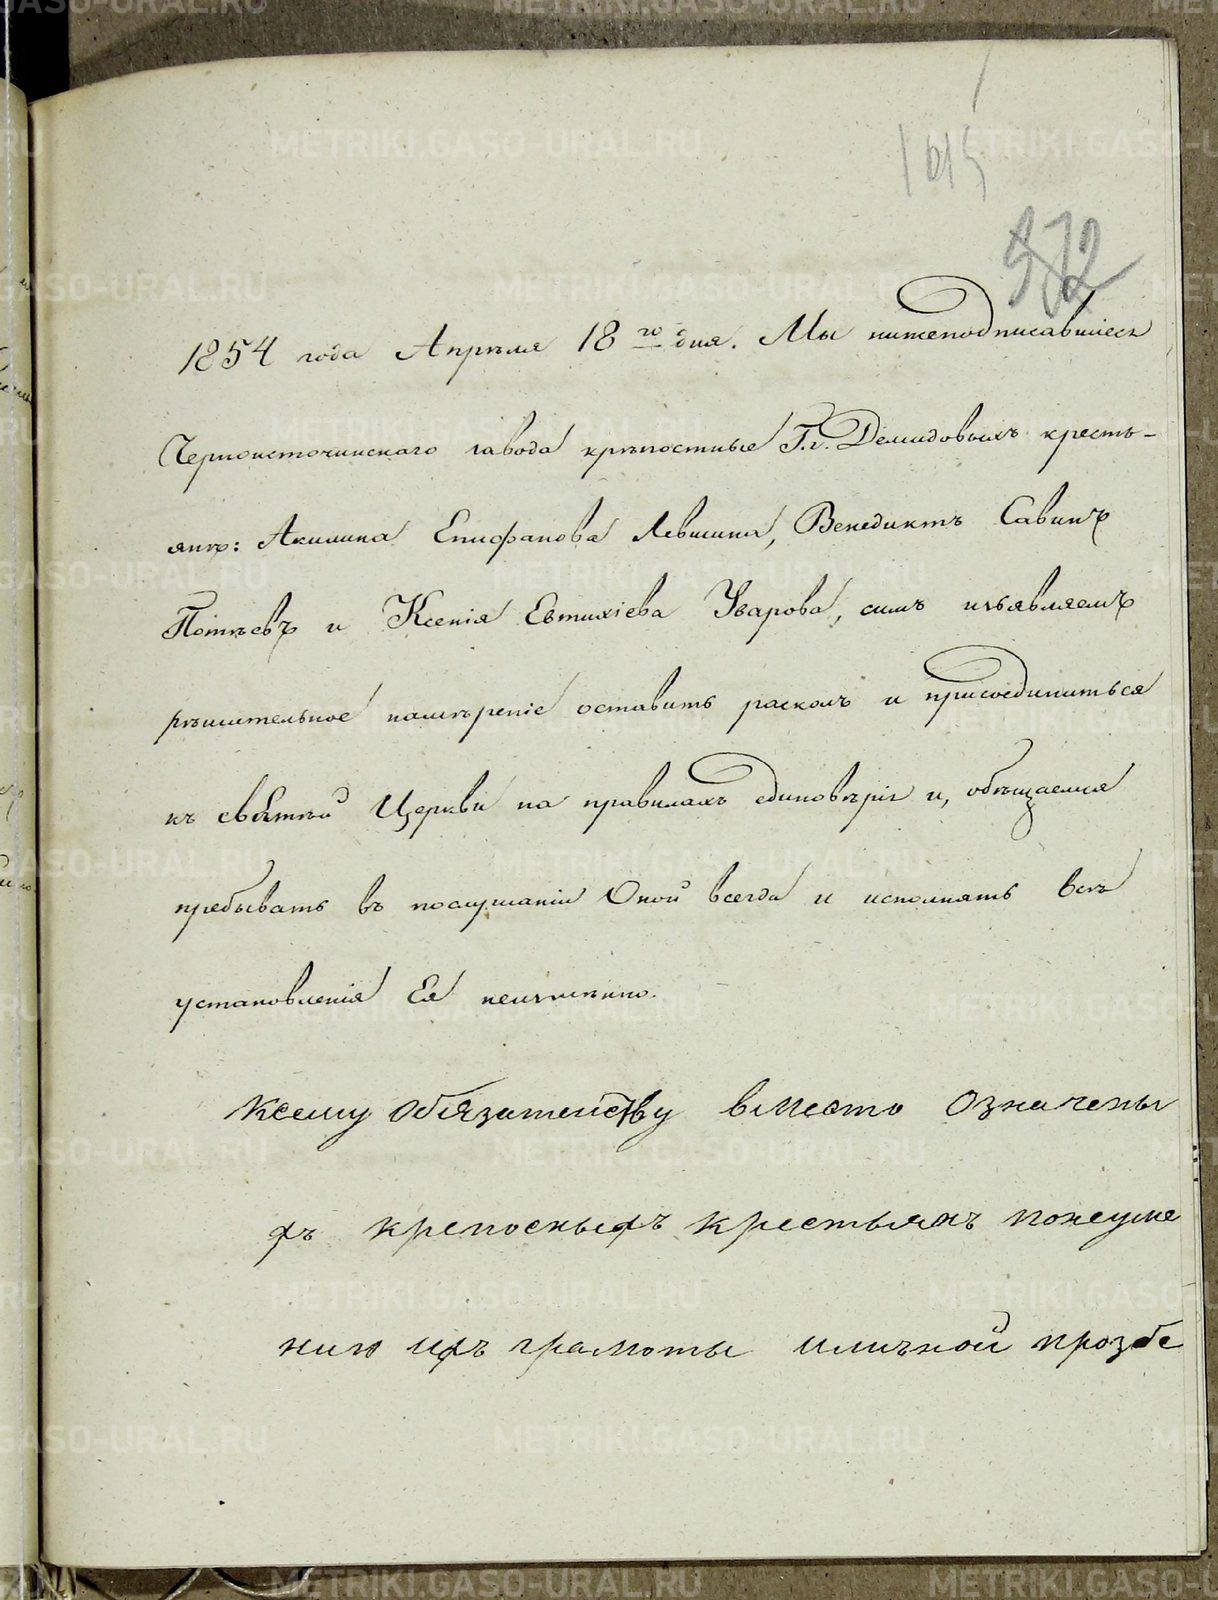 1015
972
1854 года Апрѣля 18го дня. Мы нижеподписавшіеся
Черноисточинскаго завода крѣпостные Г.г. Демидовыхъ кресть-
янъ: Акилина Епифанова Левшина, Венедиктъ Савинъ
Потѣевъ и Ксенія Евтихіева Уварова, симъ изъявляемъ
рѣшительное намѣреніе оставить расколъ и присоединиться
къ святѣй Церкви на правилахъ единовѣрія и, обѣщаемся
пребывать въ послушаніи Оной всегда и исполнять всѣ
установленія Ея неизмѣнно.
Ксему обязателству вместо Означены
хъ крепосныхъ крестьянъ понеуме
нию ихъ грамоты иличной прозбе